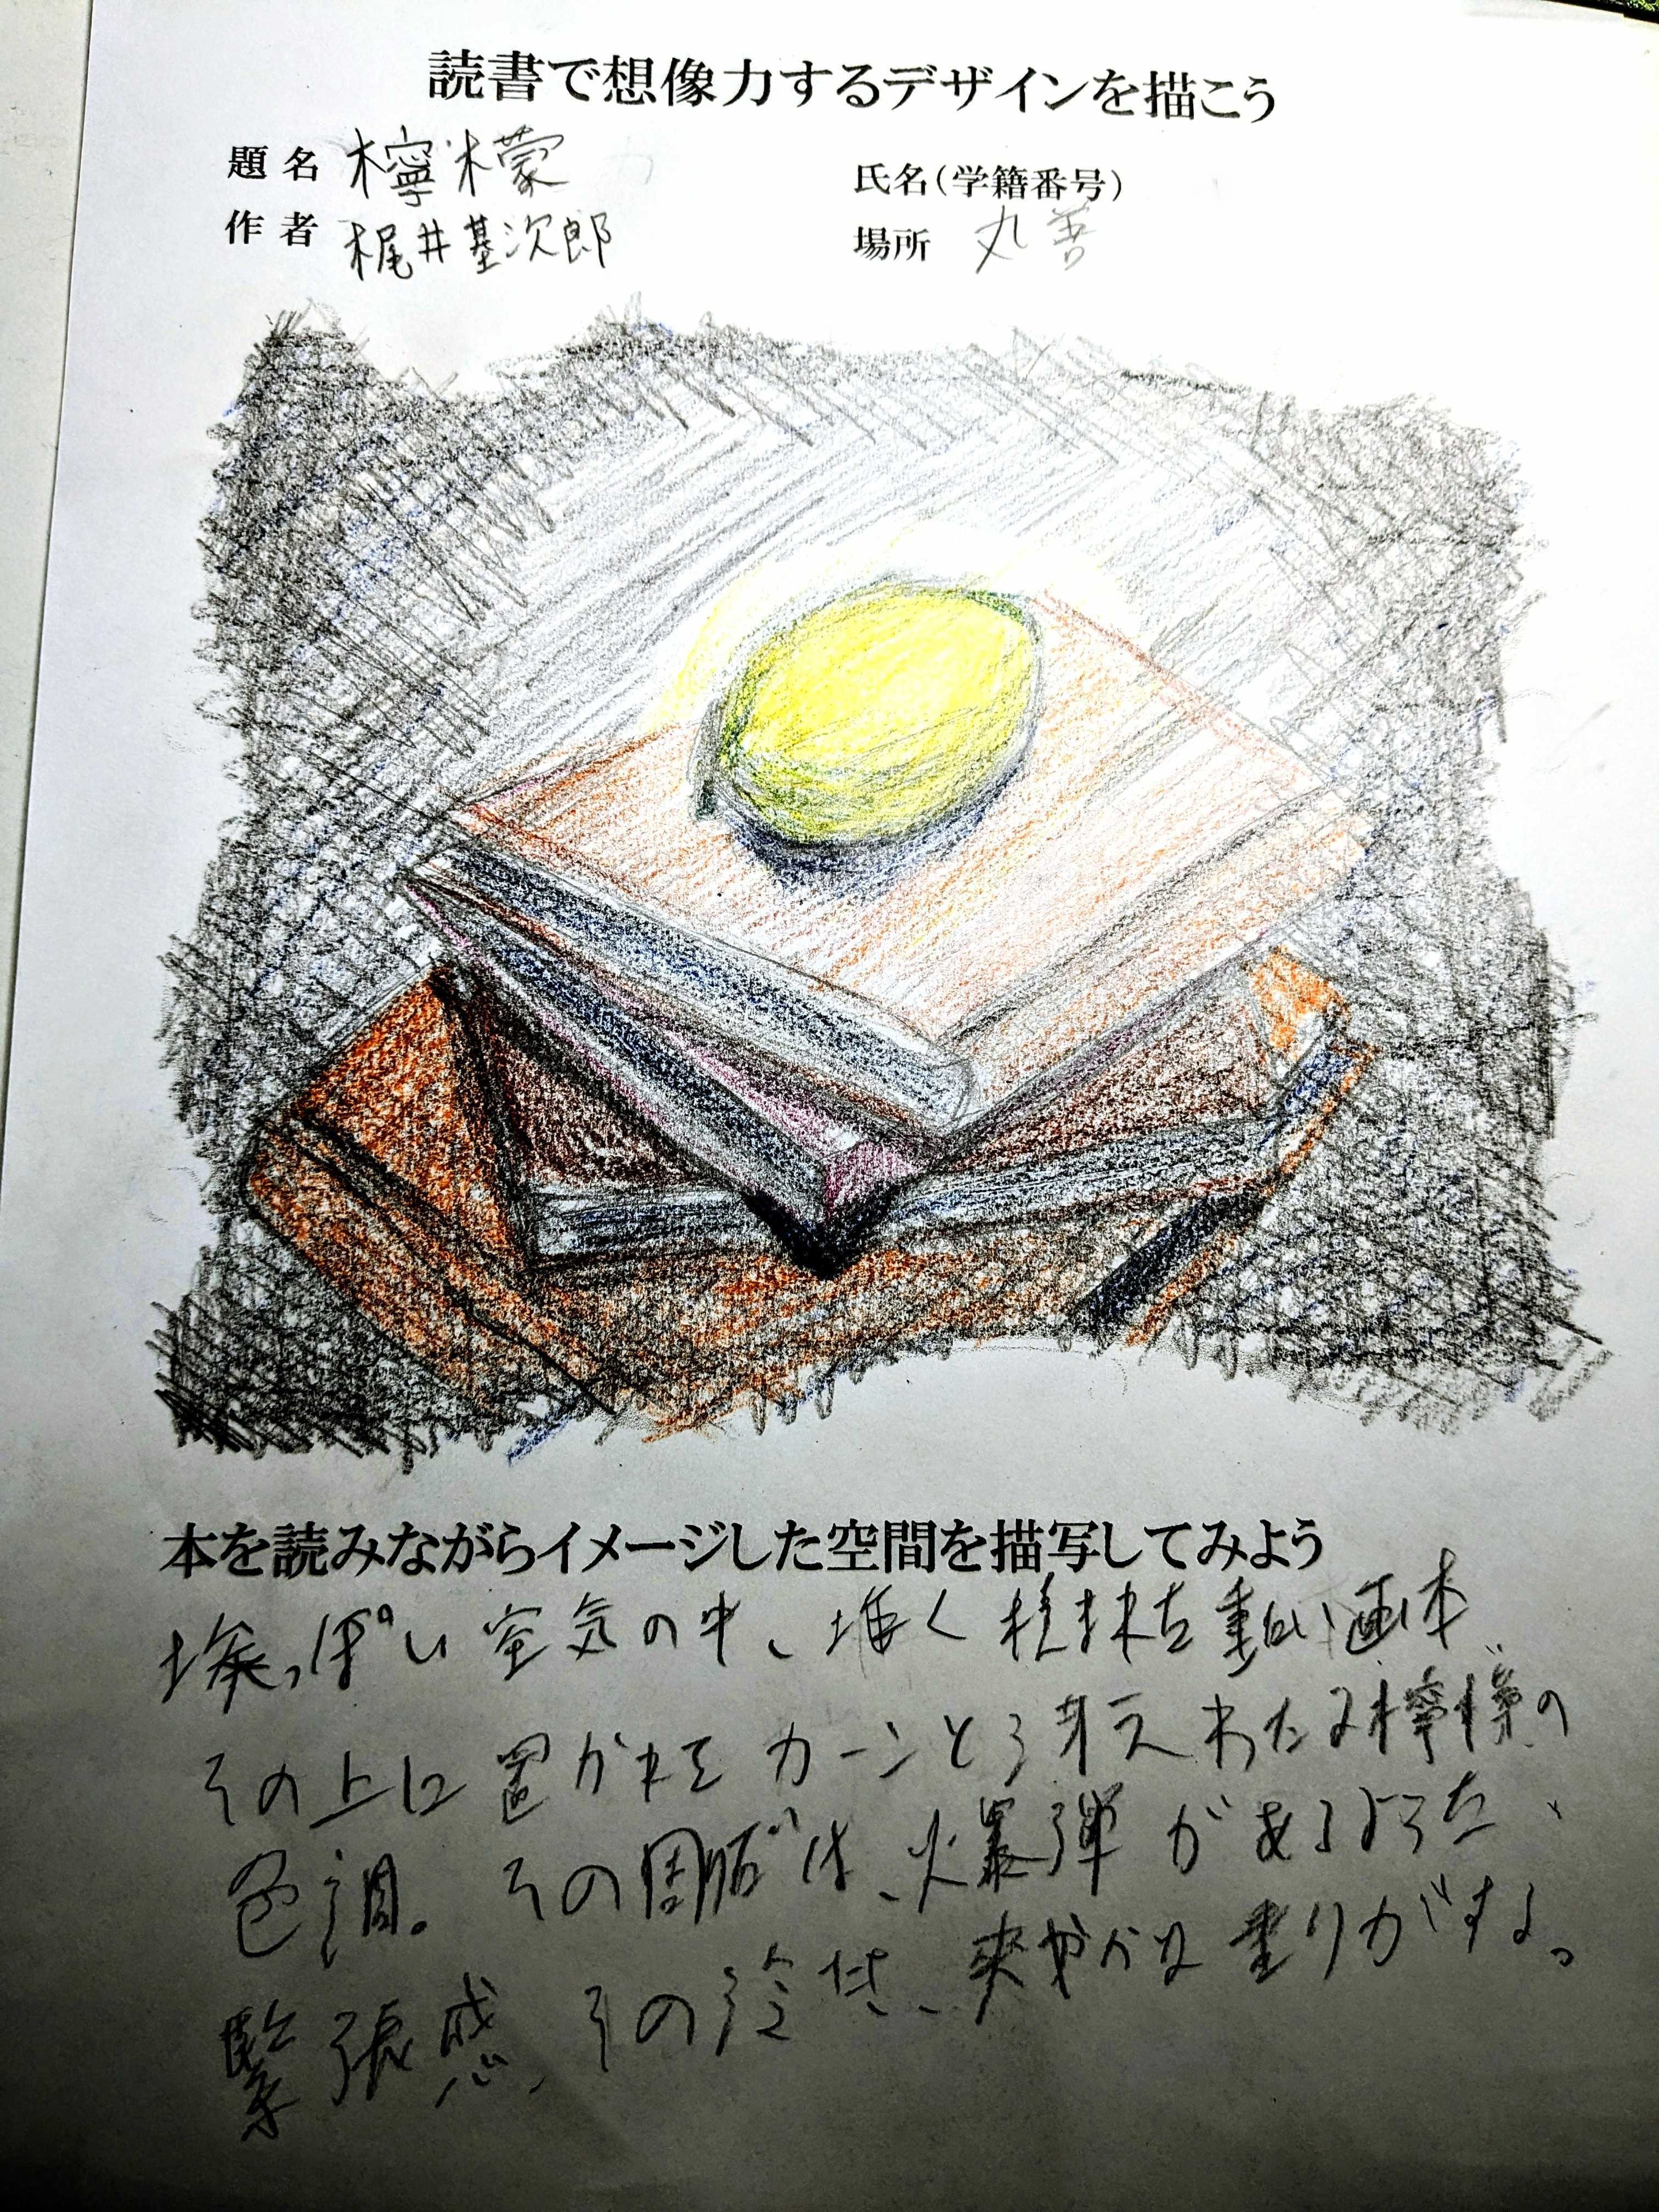 読書で想像力するデザインを描こう
題名 檸檬
作者 梶井基次郎
氏名(学籍番号)
場所 丸善
本を読みながらイメージした空間を描写してみよう
埃っぽい空気の中、
その上に置かれてカーンと
色調。その周囲は、爆弾があるような、
緊張感、その冷たさ、爽やかな香りがする。